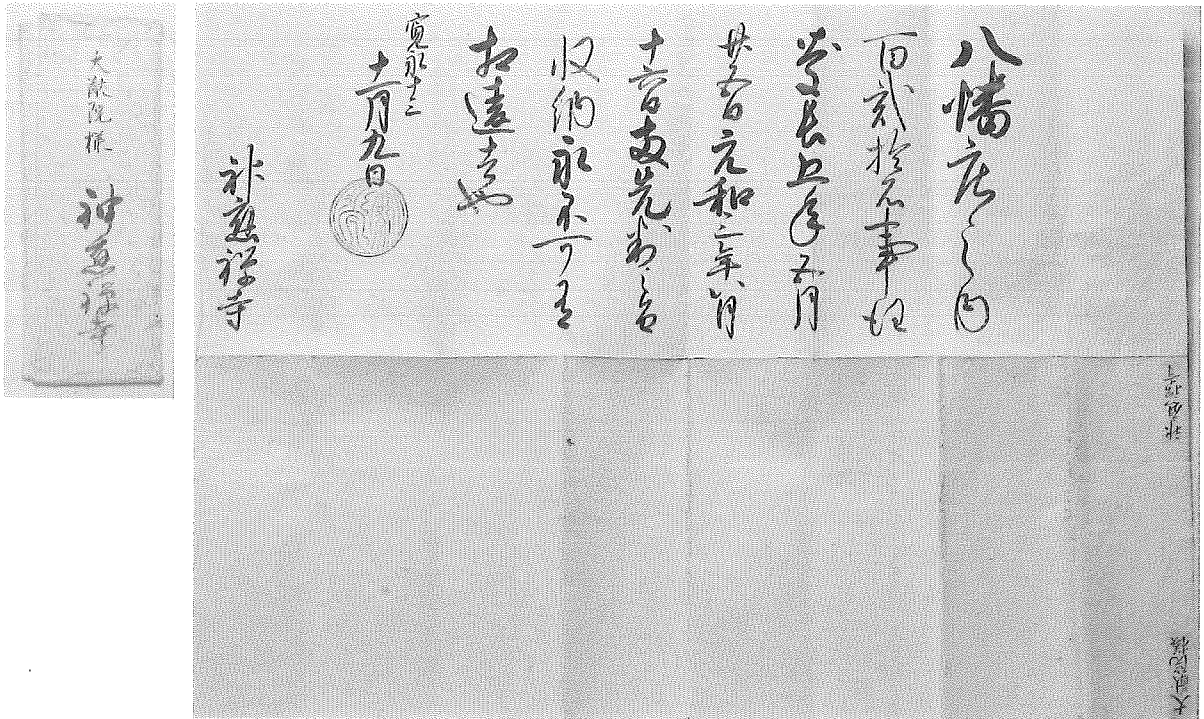 八幡庄之内
百弐拾石事任
慶長五年五月
廿五日元和三年八月
十六日両先判之旨
収納永不可有
相違者也
寛永十三
十一月九日
神應禅寺
大猷院様 神應禅寺
神應禅寺
大猷院様